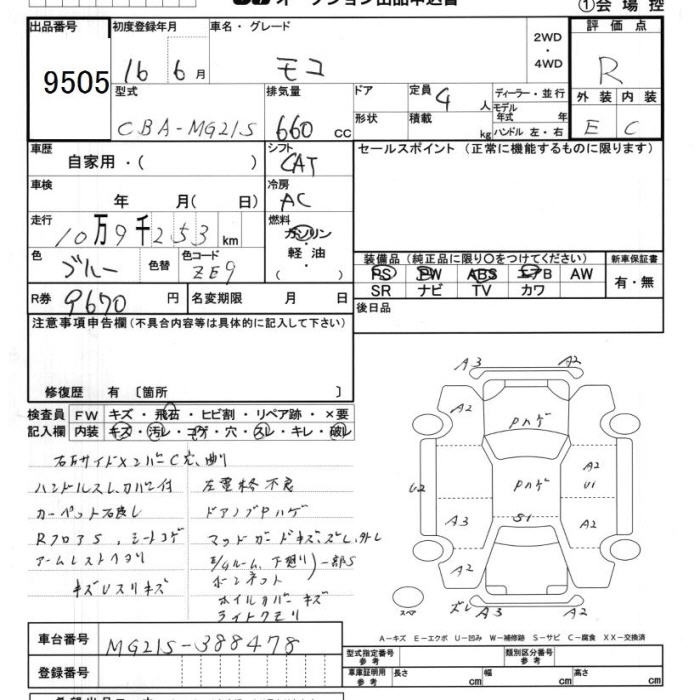 オークション出品申込書
①会場控
出品番号
9505
初度登録年月
16 6月
車名・グレード
モコ
2WD
・
4WD
評価点
R
型式
CBA-MG21S
排気量
660 cc
ドア
形状
定員 4 人
積載 kg
ディーラー・並行
モデル年式 年
ハンドル 左・右
外装 内装
E C
車歴
自家用・( )
シフト
CAT
セールスポイント(正常に機能するものに限ります)
車検
年 月( 日)
冷房
AC
走行
10万9千253 km
燃料
ガソリン
・
軽油
( )
色
ブルー
色替
色コード
ZE9
装備品(純正品に限り○をつけてください)
PS PW ABS エアB AW
SR ナビ TV カワ
新車保証書
有・無
R券 9670 円
名変期限 月 日
後日品
注意事項申告欄(不具合内容等は具体的に記入して下さい)
修復歴 有 〔箇所 〕
検査員記入欄
FW キズ・飛石・ヒビ割・リペア跡・×要
内装 キズ・汚レ・コゲ・穴・スレ・キレ・破レ
ハンドルスレ、カバー付
左電格不良
カーペット石良し
ドアノブPハゲ
RフロアS、シートコゲ
マッドガードキズ、ズレ、外レ
アームレストヘタリ
キズUスリキズ
ボンネット
ホイルカバーキズ
ライトクモリ
A3 A2
A2
Pハゲ
A2
U2
Pハゲ
U1
A3
S1
A2
A2
スペア
ズレ A3 A2
A-キズ E-エクボ U-凹み W-補修跡 S-サビ C-腐食 XX-交換済
車台番号 MG21S-388478
登録番号
型式指定番号
参考
類別区分番号
参考
車庫証明用
参考
長さ cm
幅 cm
高さ cm